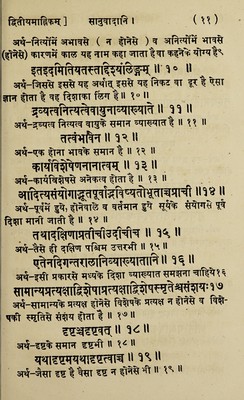 द्वितीयमाह्निकम् । सानुवादानि । (११)
अर्थ-नित्योंमें अभावसे ( न होनेसे ) व अनित्योंमें भावसे
(होनेसे) कारणमें काल यह नाम कहा जाता है वा कहनेके योग्य है ९
इतइदमितियतस्तद्दिश्यंलिङ्गम् ॥ १० ॥
अर्थ-जिससे इससे यह अर्थात् इससे यह निकट वा दूर है ऐसा
ज्ञान होता है वह दिशाका लिंग है ॥ १० ॥
द्रव्यत्वनित्यत्वेवायुनाव्याख्याते ॥ ११ ॥
अर्थ-द्रव्यत्व नित्यत्व वायुके समान व्याख्यात है ॥ ११ ॥
तत्त्वंभावेन ॥ १२ ॥
अर्थ-एक होना भावके समान है ॥ १२ ॥
कार्यविशेषेणनानात्वम् ॥ १३ ॥
अर्थ-कार्यविशेषसे अनेकत्व होता है ॥ १३ ॥
आदित्यसंयोगाद्भूतपूर्वाद्भविष्यतोभूताच्चप्राची ॥१४॥
अर्थ-पूर्वमें हुये, होनेवाले व वर्तमान हुये सूर्यके संयोगसे पूर्व
दिशा मानी जाती है ॥ १४ ॥
तथादक्षिणाप्रतीचीउदीचीच ॥ १५ ॥
अर्थ-तैसे ही दक्षिण पश्चिम उत्तरभी ॥ १५ ॥
एतेनदिगन्तरालानिव्याख्यातानि ॥ १६ ॥
अर्थ-इसी प्रकारसे मध्यके दिशा व्याख्यात समझना चाहिये१६
सामान्यप्रत्यक्षाद्विशेषाप्रत्यक्षाद्विशेषस्मृतेश्चसंशयः१७
अर्थ-सामान्यके प्रत्यक्ष होनेसे विशेषके प्रत्यक्ष न होनेसे व विशे-
षकी स्मृतिसे संशय होता है ॥ १७ ॥
दृष्टञ्चदृष्टवत् ॥ १८ ॥
अर्थ-दृष्टके समान दृष्टभी ॥ १८ ॥
यथादृष्टमयथादृष्टत्वाच्च ॥ १९ ॥
अर्थ-जैसा दृष्ट है वैसा दृष्ट न होनेसे भी ॥ १९ ॥